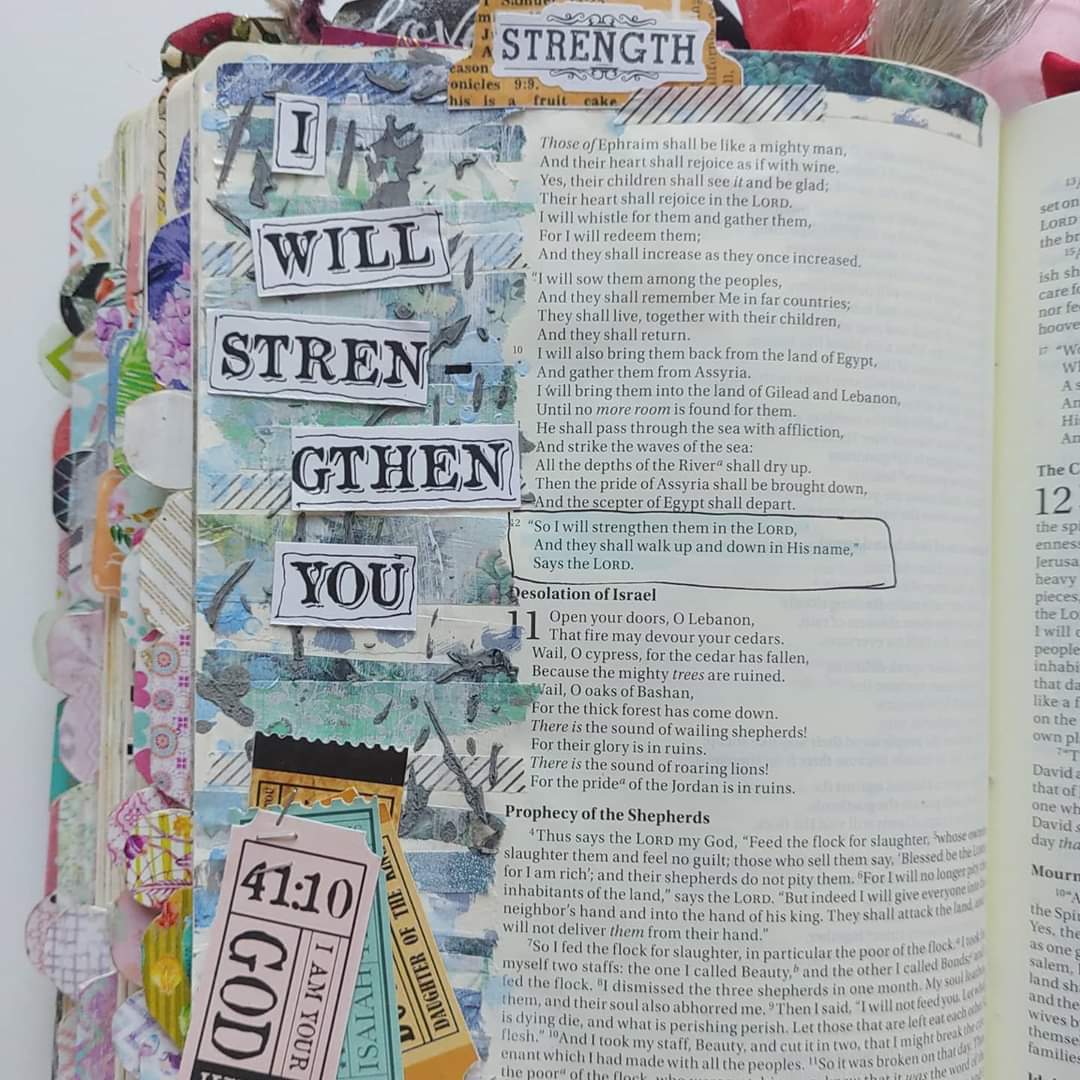 STRENGTH
eason
onicles 9:9.
his is a fruit cake
I
WILL
STREN-
GTHEN
YOU
41:10
GOD
I AM YOUR
ISAIAH
DAUGHTER OF THE
Those of Ephraim shall be like a mighty man,
And their heart shall rejoice as if with wine.
Yes, their children shall see it and be glad;
Their heart shall rejoice in the LORD.
I will whistle for them and gather them,
For I will redeem them;
And they shall increase as they once increased.
"I will sow them among the peoples,
And they shall remember Me in far countries;
They shall live, together with their children,
And they shall return.
10 I will also bring them back from the land of Egypt,
And gather them from Assyria.
I will bring them into the land of Gilead and Lebanon,
Until no more room is found for them.
He shall pass through the sea with affliction,
And strike the waves of the sea:
All the depths of the Riverᵃ shall dry up.
Then the pride of Assyria shall be brought down,
And the scepter of Egypt shall depart.
12 "So I will strengthen them in the LORD,
And they shall walk up and down in His name,"
Says the LORD.
Desolation of Israel
11 Open your doors, O Lebanon,
That fire may devour your cedars.
Wail, O cypress, for the cedar has fallen,
Because the mighty trees are ruined.
Wail, O oaks of Bashan,
For the thick forest has come down.
There is the sound of wailing shepherds!
For their glory is in ruins.
There is the sound of roaring lions!
For the prideᵃ of the Jordan is in ruins.
Prophecy of the Shepherds
4 Thus says the LORD my God, "Feed the flock for slaughter, 5 whose
slaughter them and feel no guilt; those who sell them say, 'Blessed be the
for I am rich'; and their shepherds do not pity them. 6 For I will no longer pity the
inhabitants of the land," says the LORD. "But indeed I will give everyone into
neighbor's hand and into the hand of his king. They shall attack the land,
will not deliver them from their hand."
7 So I fed the flock for slaughter, in particular the poor of the flock. I took
myself two staffs: the one I called Beauty,ᵇ and the other I called Bonds;
fed the flock. 8 I dismissed the three shepherds in one month. My soul
them, and their soul also abhorred me. 9 Then I said, "I will not feed you. Let
is dying die, and what is perishing perish. Let those that are left eat each
flesh." 10 And I took my staff, Beauty, and cut it in two, that I might break the
enant which I had made with all the peoples. 11 So it was broken on that day.
the poorᵃ of the flock, who were watching me, knew that it was the word of
13
set on
LORD
the br
15
ish sh
care fo
nor fe
hoove
17 "Wo
A s
An
Hi
An
The C
12
the sp
ennes
Jerusa
heavy
pieces
the Lo
I will
people
inhabi
that da
like a f
on the
own pl
David a
that of
one wh
David s
day tha
Mourn
10 "A
the Spir
Yes, the
as one g
salem,
land sh
and the
wives b
themse
families